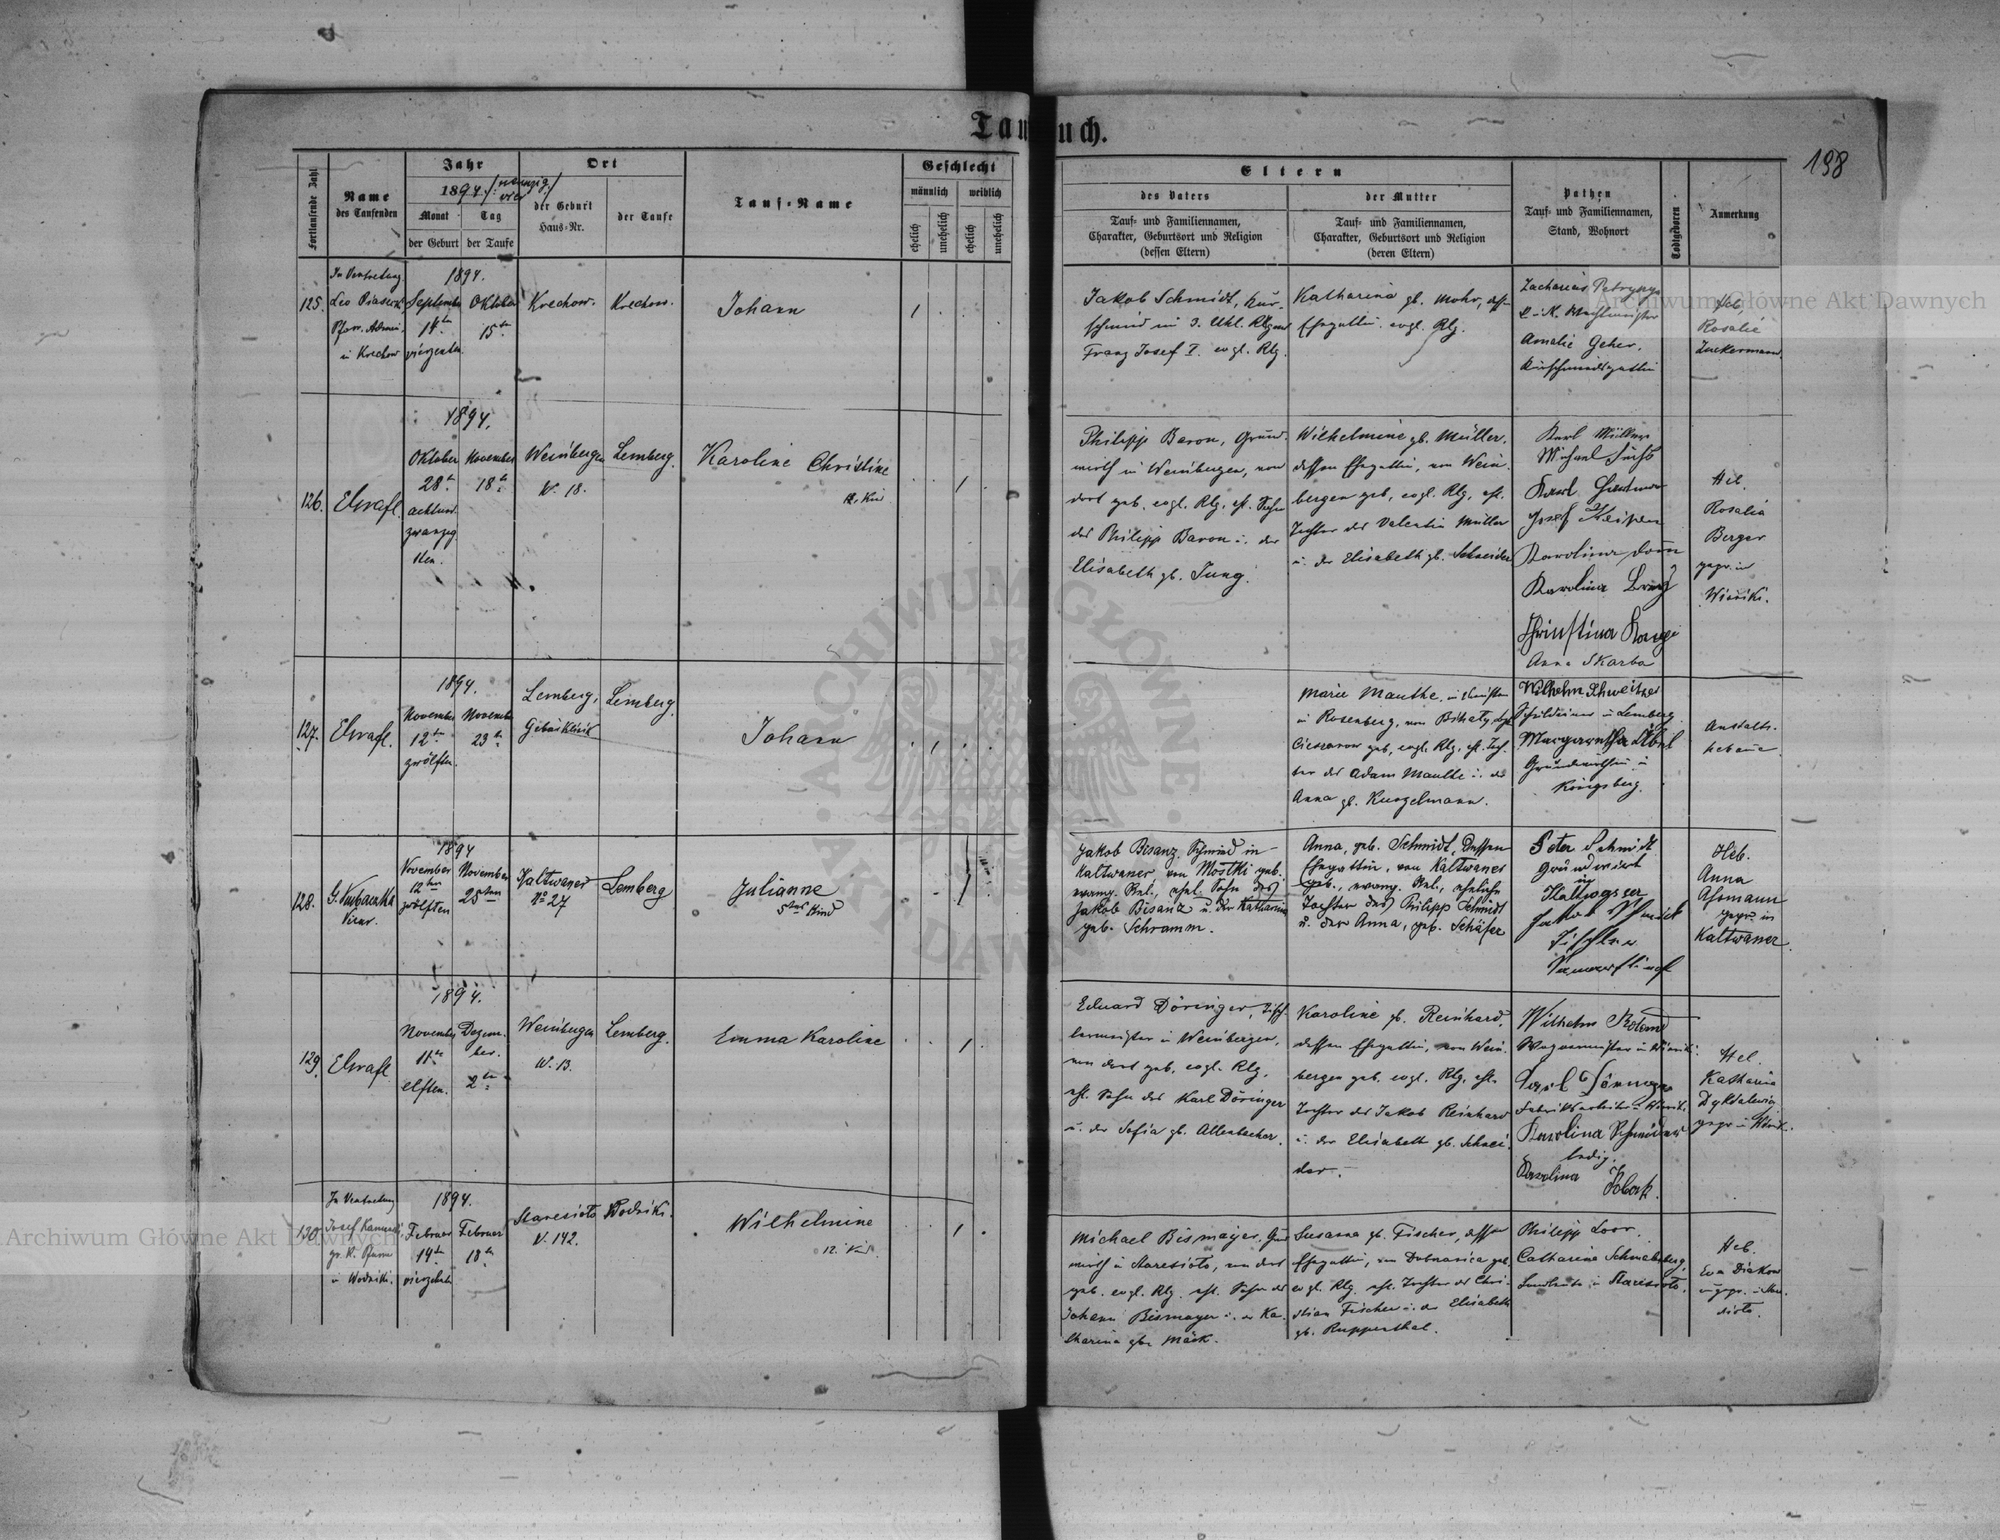 Taufbuch.
198
Fortlaufende Zahl
Name
des Taufenden
Jahr
1894. /: neunzig vier :/
Monat
Tag
der Geburt
der Taufe
Ort
der Geburt
Haus-Nr.
der Taufe
Tauf-Name
Geschlecht
männlich
weiblich
ehelich
unehelich
ehelich
unehelich
Eltern
des Vaters
Tauf- und Familiennamen,
Charakter, Geburtsort und Religion
(dessen Eltern)
der Mutter
Tauf- und Familiennamen,
Charakter, Geburtsort und Religion
(deren Eltern)
Pathen
Tauf- und Familiennamen,
Stand, Wohnort
Todtgeboren
Anmerkung
125.
In Vertretung
Leo
Pfarr. Admi.
in Krechow
1894.
September
14ten
vierzehten
Oktober
15ten
Krechow.
Krechow.
Johann
1
Jakob Schmidt, Kur-
schmied im 3. Uhl. Rlg
Franz Josef I. evgl. Rlg.
Katharina gb. Mohr, dess.
Ehegattin. evgl. Rlg.
Zacharias Petrypyo
k. u. K. Wachtmeister
Amalie Geher,
Kurschmiedsgattin
Heb.
Rosalie
Zuckermann.
126.
Elvrafl.
1894.
Oktober
28ten
achtund
zwanzig
sten.
November
18ten
Weinbergen
N. 18.
Lemberg.
Karoline Christine
12. Kind
1
Philipp Baron, Grund-
wirth in Weinbergen, von
dort geb. evgl. Rlg. ehl. Sohn
des Philipp Baron u. der
Elisabeth gb. Jung.
Wilhelmine gb. Müller,
dessen Ehegattin, von Wein-
bergen geb, evgl. Rlg, ehl.
Tochter des Valentin Müller
u. der Elisabeth gb. Schneider
Karl Müller
Michael Fuchs
Karl
Josef
Karolina
Karolina
Christina
Anna Skarba
Heb.
Rosalia
Berger
gepr. in
Winniki.
127.
Elvrafl.
1894.
November
12ten
zwölften.
November
23ten
Lemberg,
Gebärklinik
Lemberg.
Johann
1
Marie Manthe,
in Rosenberg, von
Cieszanow geb, evgl. Rlg, ehl. Toch-
ter des Adam Manthe u. der
Anna gb. Kunzelmann.
Wilhelm Schweitzer
Schuldiener in Lemberg
Margaretha
Grundwirthin in
Königsberg.
Anstalts-
hebamme.
128.
G. Kubaczka
Vicar.
1894
November
12ten
zwölften
November
25sten
Kaltwaner
No 27
Lemberg
Julianne
5tes Kind
1
Jakob Bisanz, Schmied in
Kaltwaner von Mostki geb.
evang. Rel., ehel. Sohn des
Jakob Bisanz u. der Katharina
geb. Schramm.
Anna, geb. Schmidt, dessen
Ehegattin, von Kaltwaner
geb., evang. Rel., eheliche
Tochter des Philipp Schmidt
u. der Anna, geb. Schäfer
Peter Schmidt
Grundwirt
in
Jakob
Tischler
Heb.
Anna
Assmann
gepr. in
Kaltwaner.
129.
Elvrafl
1894.
November
11ten
elften.
Dezem-
ber.
2ten
Weinbergen
N. 13.
Lemberg.
Emma Karoline
1
Eduard Döringer, Tisch-
lermeister in Weinbergen,
von dort geb, evgl. Rlg,
ehl. Sohn des Karl Döringer
u. der Sofia gb. Allenbacher.
Karoline gb. Reinhard,
dessen Ehegattin, von Wein-
bergen geb. evgl. Rlg, ehl.
Tochter des Jakob Reinhard
u. der Elisabeth gb. Schnei-
der.
Wilhelm
Wagnermeister in Winniki.
Karl
Fabriksarbeiter in Winnik.
Karolina Schneider
ledig.
Karolina
Heb.
Katharina
gepr. in Winnik.
130.
In Vertretung
Josef
gr. k. Pfarrer
in Wodniki.
1894.
Februar
14ten
vierzehnten
Februar
18ten
Staresioto
N. 142.
Wodniki.
Wilhelmine
12. Kind.
1
Michael Bismayer, Grund-
wirth in Staresioto, von dort
geb. evgl. Rlg. ehl. Sohn des
Johann Bismayer u. der Ka-
tharina gbr. Mäck.
Susanna gb. Fischer, dessen
Ehegattin, von Dobrzanica geb.
evgl. Rlg. ehl. Tochter des Chri-
stian Fischer u. der Elisabeth
gb. Rupperthal.
Philipp Loor.
Catharina
Landleute in Staresioto.
Heb.
Eva Diakow
ungepr. in Stare-
sioto.
Archiwum Główne Akt Dawnych
Archiwum Główne Akt Dawnych
ARCHIWUM GŁÓWNE AKT DAWNYCH